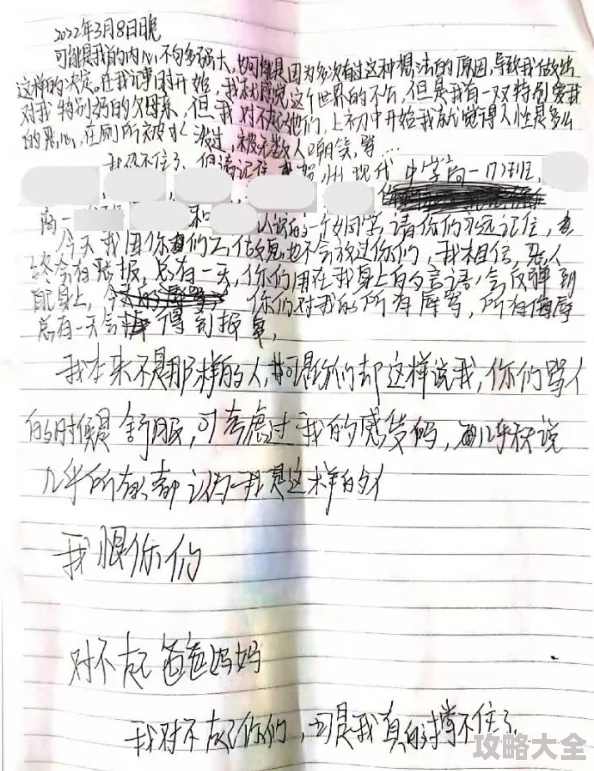 2022年3月8日晚
可能是我的内心不句多强大,也可能是因为多次有过这种想法的原因,导致我做出
这样的决定。在我记事时开始,我就感觉这个世界的不公,但是我有一双特别爱我
对我特别好的父母亲,但我对不起他们,上初中开始我就觉得人性是多么
的恶心,在厕所被 泼过,被无数人嘲气,骂…
我忍不住了,但请记住, 贺州现代中学高一
高一 和 一个女同学,请你们永远记住,
今天我因你们 做鬼也不会放过你们,我相信,恶人
终会有报报,总有一天,你们用在我身上的言语,会反弹到
身上, 你们对我的所有辱骂,所有侮辱
总有一天会得到报
我本来不是那样的人,可是你们却这样说我,你们骂人
的时候是舒服,可考虑过我的感受码, 说
几乎所有 都认为我是这样的
我恨你们
对不起爸爸妈妈
我对不起你们,可是我真的撑不住了
攻略大全